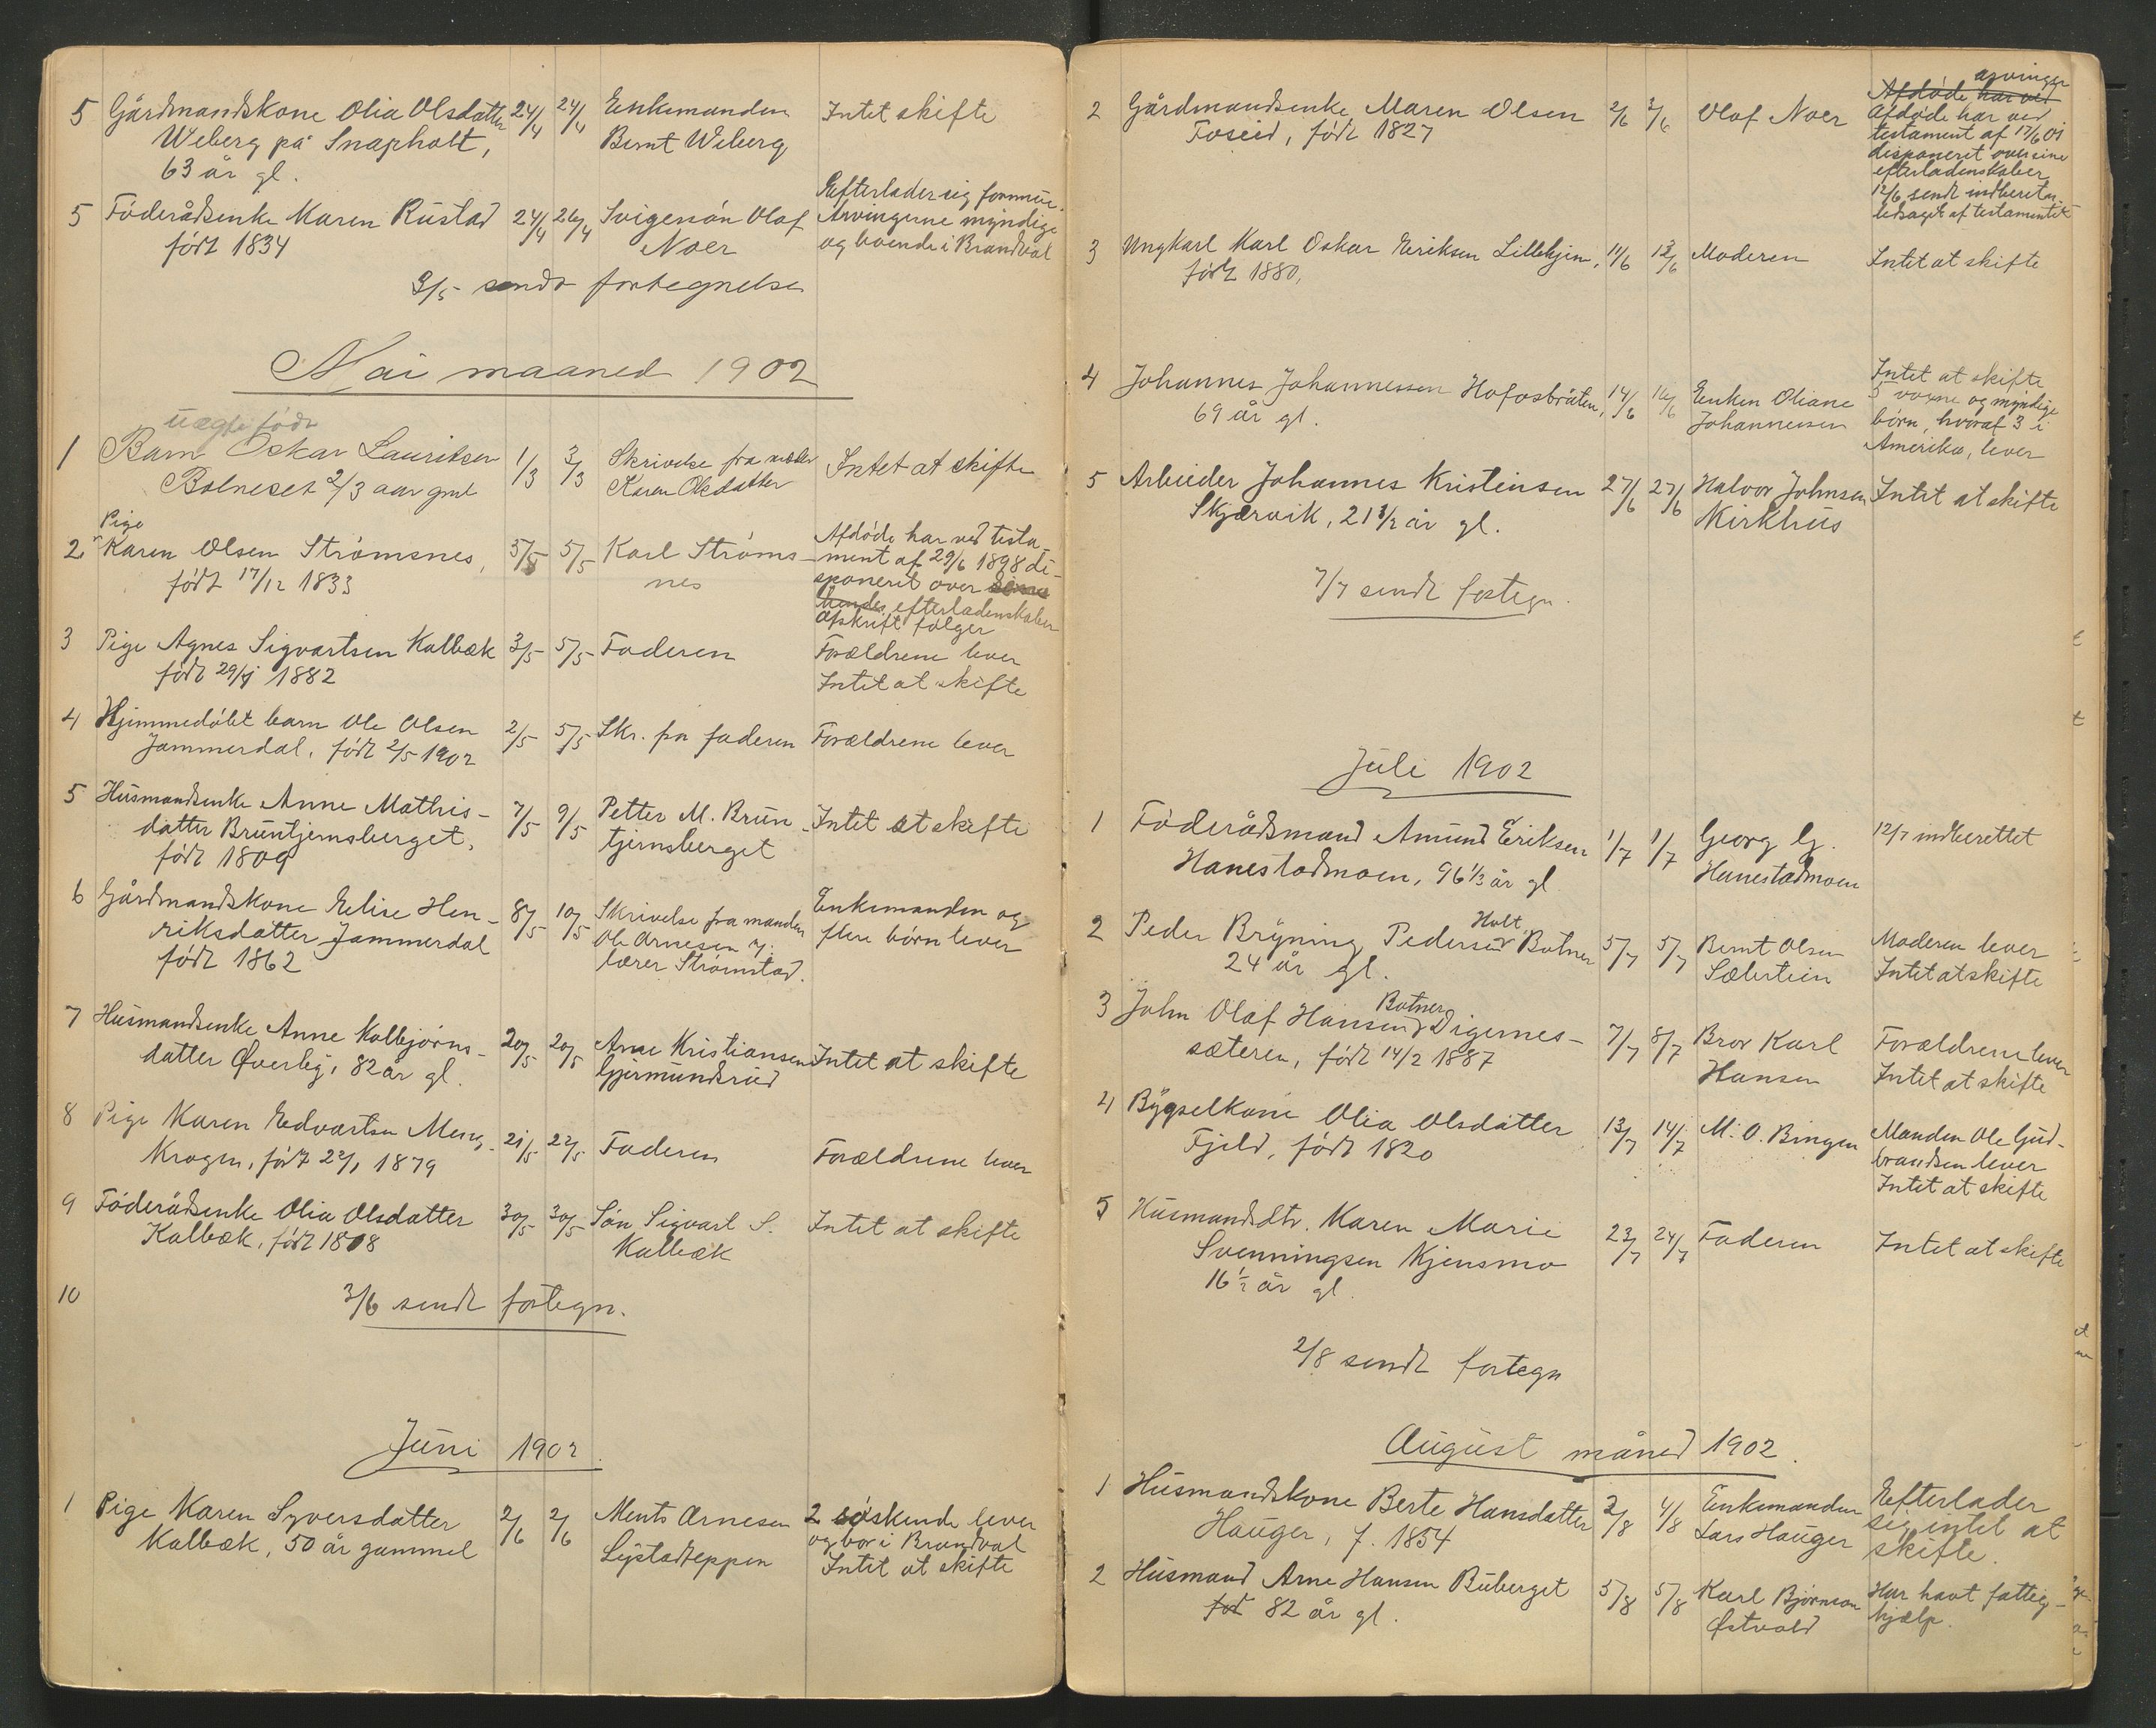 5 Gårdmandskone Olia Olsdatter 24/4 24/4 Enkemanden Intet skifte
Weberg på Snapholt, Bernt Weberg
63 år gl.
5 Föderådsenke Maren Rustad 24/4 26/4 Svigersön Olaf Efterlader sig formue.
født 1834 Noer Arvingerne myndige
og boende i Brandval
3/5 sendt fortegnelse
Mai maaned 1902
uægte født
1 Barn Oskar Lauritsen 1/3 3/3 Skrivelse fra Intet at skifte
Bolneset 2/3 aar gml Karen Olsdatter
Pige
2 Karen Olsen Strømsnes, 3/5 5/5 Karl Strøms- Afdøde har ved testa-
født 17/12 1833 nes ment af 29/6 1898 di-
sponeret over sine
hendes efterladenskaber
Afskrift følger
3 Pige Agnes Sigvartsen Kalbæk 3/5 5/5 Faderen Forældrene lever
født 29/4 1882 Intet at skifte
4 Hjemmedøbt barn Ole Olsen 2/5 5/5 Skr. fra faderen Forældrene lever
Jammerdal, født 2/5 1902
5 Husmandsenke Anne Mathis- 7/5 9/5 Petter M. Brun- Intet at skifte
datter Bruntjernsberget, tjernsberget
født 1809
6 Gårdmandskone Elise Hen- 8/5 10/5 Skrivelse fra manden Enkemanden og
riksdatter Jammerdal Ole Arnesen flere börn lever
født 1862 lærer Strömstad.
7 Husmandsenke Anne Kolbjørns- 20/5 20/5 Arne Kristiansen Intet at skifte
datter Øverby, 82 år gl. Gjermundsrud
8 Pige Karen Edvartsen Meng- 21/5 22/5 Faderen Forældrene lever
Krogen, født 22/1 1879
9 Föderådsenke Olia Olsdatter 30/5 30/5 Sön Sigvart S. Intet at skifte
Kalbæk, født 1808 Kalbæk
10 3/6 sendt fortegn.
Juni 1902.
1 Pige Karen Syversdatter 2/6 2/6 Ments Arnesen 2 søskende lever
Kalbæk, 50 år gammel Lystadteppen og bor i Brandval
Intet at skifte
arvinger
Afdøde har ved
2 Gårdmandsenke Maren Olsen 2/6 3/6 Olaf Noer Afdøde har ved
Foseid, født 1827 testament af 17/6 01
disponeret over sine
efterladenskaber
12/6 sendt indberetn.
ledsaget af testamentet
3 Ungkarl Karl Oskar Eriksen Lillehjem, 11/6 13/6 Moderen Intet at skifte
født 1880,
4 Johannes Johannessen Hofosbråten, 14/6 16/6 Enken Oliane Intet at skifte
69 år gl. Johannessen 5 voxne og myndige
børn, hvoraf 3 i
Amerika, lever
5 Arbeider Johannes Kristensen 27/6 27/6 Halvor Johnsen Intet at skifte
Skjærvik, 21 1/2 år gl. Kirkhus
7/7 sendt fortegn.
Juli 1902
1 Föderådsmand Amund Eriksen 1/7 1/7 Georg G. 12/7 indberettet
Hanestadmoen, 96 1/3 år gl. Hanestadmoen
Holt
2 Peder Bryning Pedersen Botner 5/7 5/7 Bernt Olsen Moderen lever
24 år gl. Sæbertein Intet at skifte
Botner
3 John Olaf Hansen Digernes- 7/7 8/7 Bror Karl Forældrene lever
sæteren, født 14/2 1887 Hansen Intet at skifte
4 Bygselkone Olia Olsdatter 13/7 14/7 M. O. Bingen Manden Ole Gud-
Fjeld, født 1820 brandsen lever
Intet at skifte
5 Husmandsdtr. Karen Marie 23/7 24/7 Faderen Intet at skifte
Svenningsen Kjensmo
16 1/2 år gl.
2/8 sendt fortegn
August måned 1902.
1 Husmandskone Berte Hansdatter 2/8 4/8 Enkemanden Efterlader
Hauger, f. 1854 Lars Hauger sig intet at
skifte.
2 Husmand Arne Hansen Buberget 5/8 5/8 Karl Bjørnson Har havt fattig-
fød 82 år gl. Østvold hjælp.